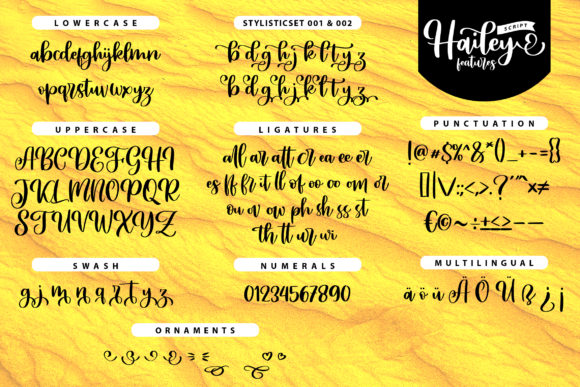 SCRIPT
Hailey
features
LOWERCASE
abcdefghijklmn
opqrstuvwxyz
STYLISTICSET 001 & 002
b d g h j k l t y z
b d g h j k l t y z
UPPERCASE
ABCDEFGHI
JKLMNOPQR
STUVWXYZ
LIGATURES
all ar att cr ea ee er
es ff fr it ll of oo cc om or
ou av ow ph sh ss st
th tt ur wi
PUNCTUATION
!@#$%^&*()_+-={}
[]|\/:;<,>.?'"`~×≠
€©~÷±<>——
SWASH
g j m n q x t y z
NUMERALS
01234567890
MULTILINGUAL
ä ö ü Ä Ö Ü ß ¿ ¡
ORNAMENTS